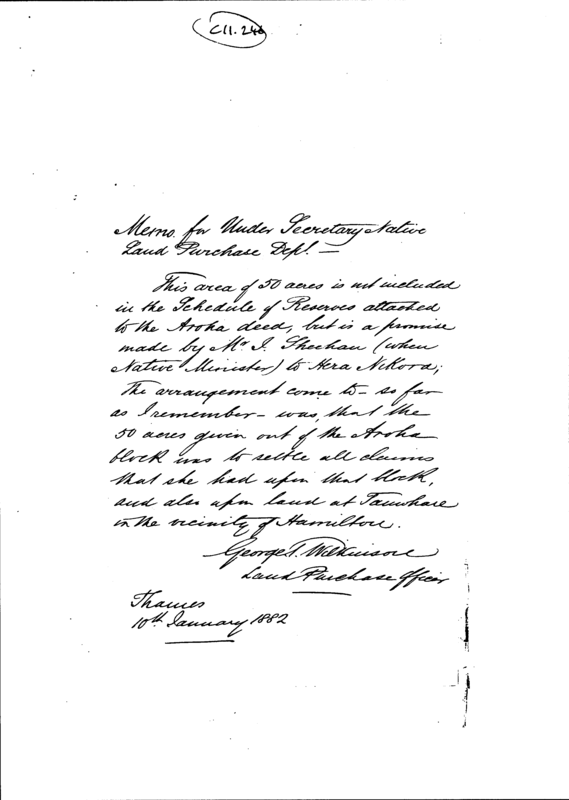 C11.246
Memo. for Under Secretary Native
Land Purchase Dept. —
This area of 50 acres is not included
in the Schedule of Reserves attached
to the Aroha deed, but is a promise
made by Mr J. Sheehan (when
Native Minister) to Hera Nikora;
The arrangement come to - so far
as I remember - was, that the
50 acres given out of the Aroha
block was to settle all claims
that she had upon that block,
and also upon land at Tauwhare
in the vicinity of Hamilton.
George T. Wilkinson
Land Purchase Officer
Thames
10th January 1882